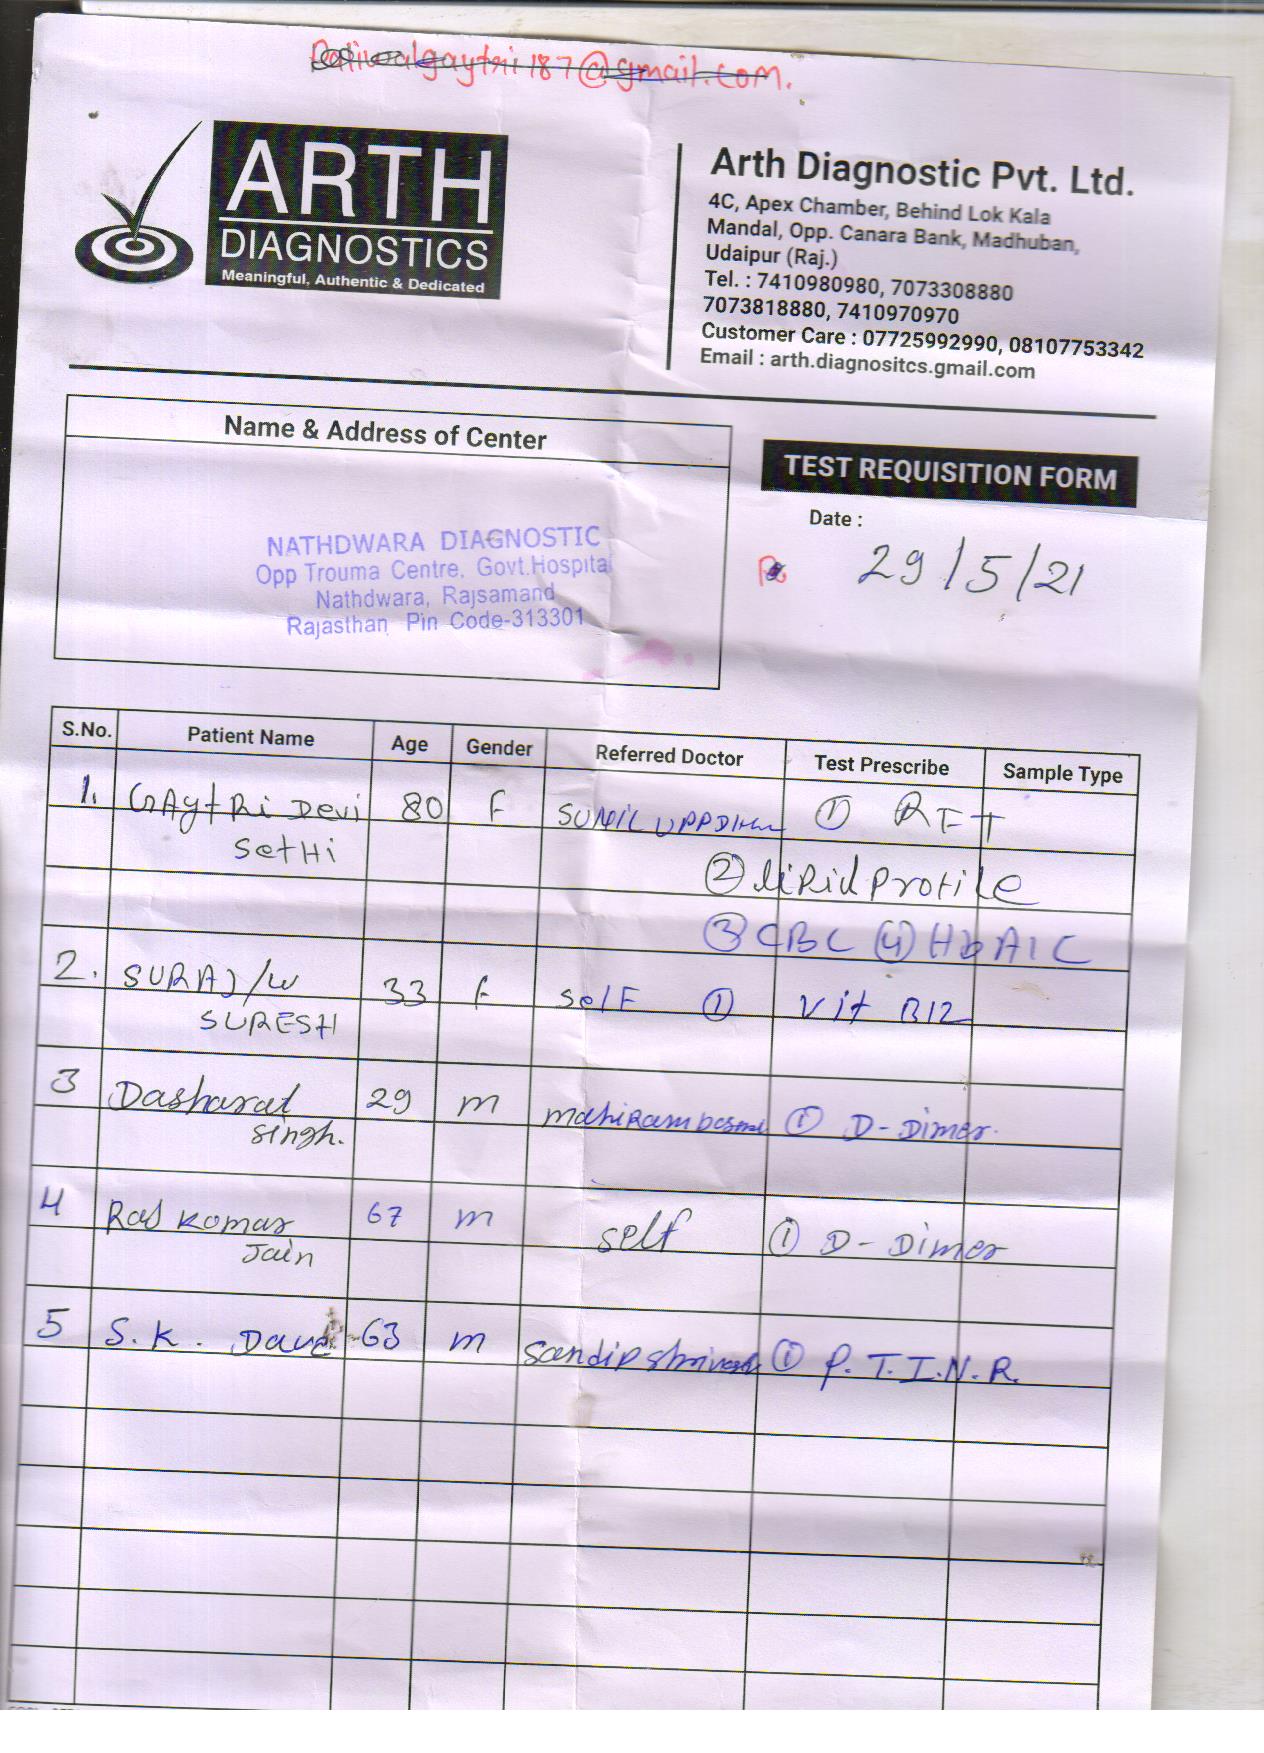 ARTH
DIAGNOSTICS
Meaningful, Authentic & Dedicated
Arth Diagnostic Pvt. Ltd.
4C, Apex Chamber, Behind Lok Kala
Mandal, Opp. Canara Bank, Madhuban,
Udaipur (Raj.)
Tel. : 7410980980, 7073308880
7073818880, 7410970970
Customer Care : 07725992990, 08107753342
Email : arth.diagnositcs.gmail.com
Name & Address of Center
NATHDWARA DIAGNOSTIC
Opp Trouma Centre, Govt.Hospital
Nathdwara, Rajsamand
Rajasthan Pin Code-313301
TEST REQUISITION FORM
Date :
29/5/21
S.No. Patient Name Age Gender Referred Doctor Test Prescribe Sample Type
1. GAytRi Devi 80 F SUNIL ① RFT
SetHi ② liPid Profile
③ CBC ④ HbA1C
2. SURAJ/w 33 F Self ① Vit B12
SURESH
3 Dasharat 29 m ① D-Dimer.
Singh.
4 Raj Komar 67 m self ① D-Dimer
Jain
5 S.K. Dave 63 m Sandip ① P.T.I.N.R.